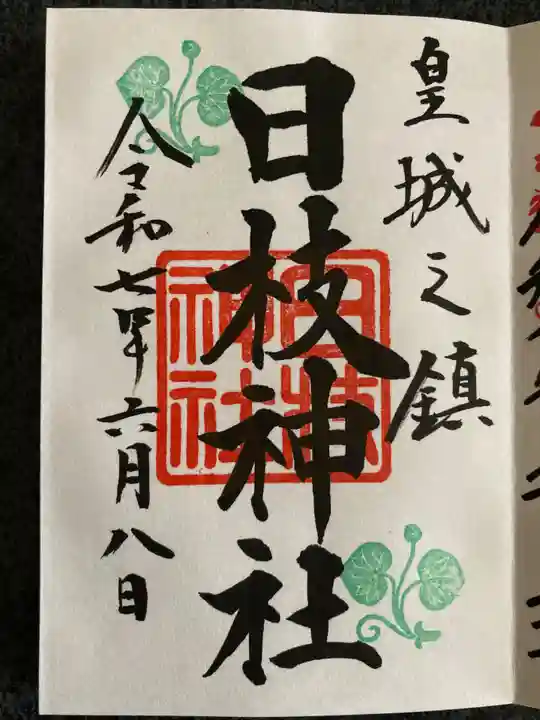 皇城之鎮
日枝神社
日枝神社
令和七年六月八日